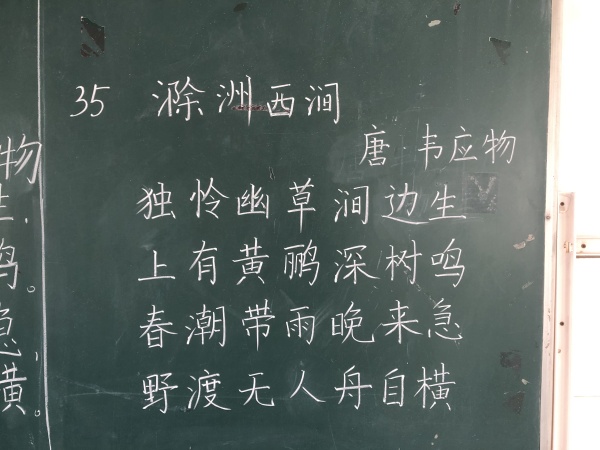 物
35 滁洲西涧
唐·韦应物
独怜幽草涧边生
上有黄鹂深树鸣
春潮带雨晚来急
野渡无人舟自横